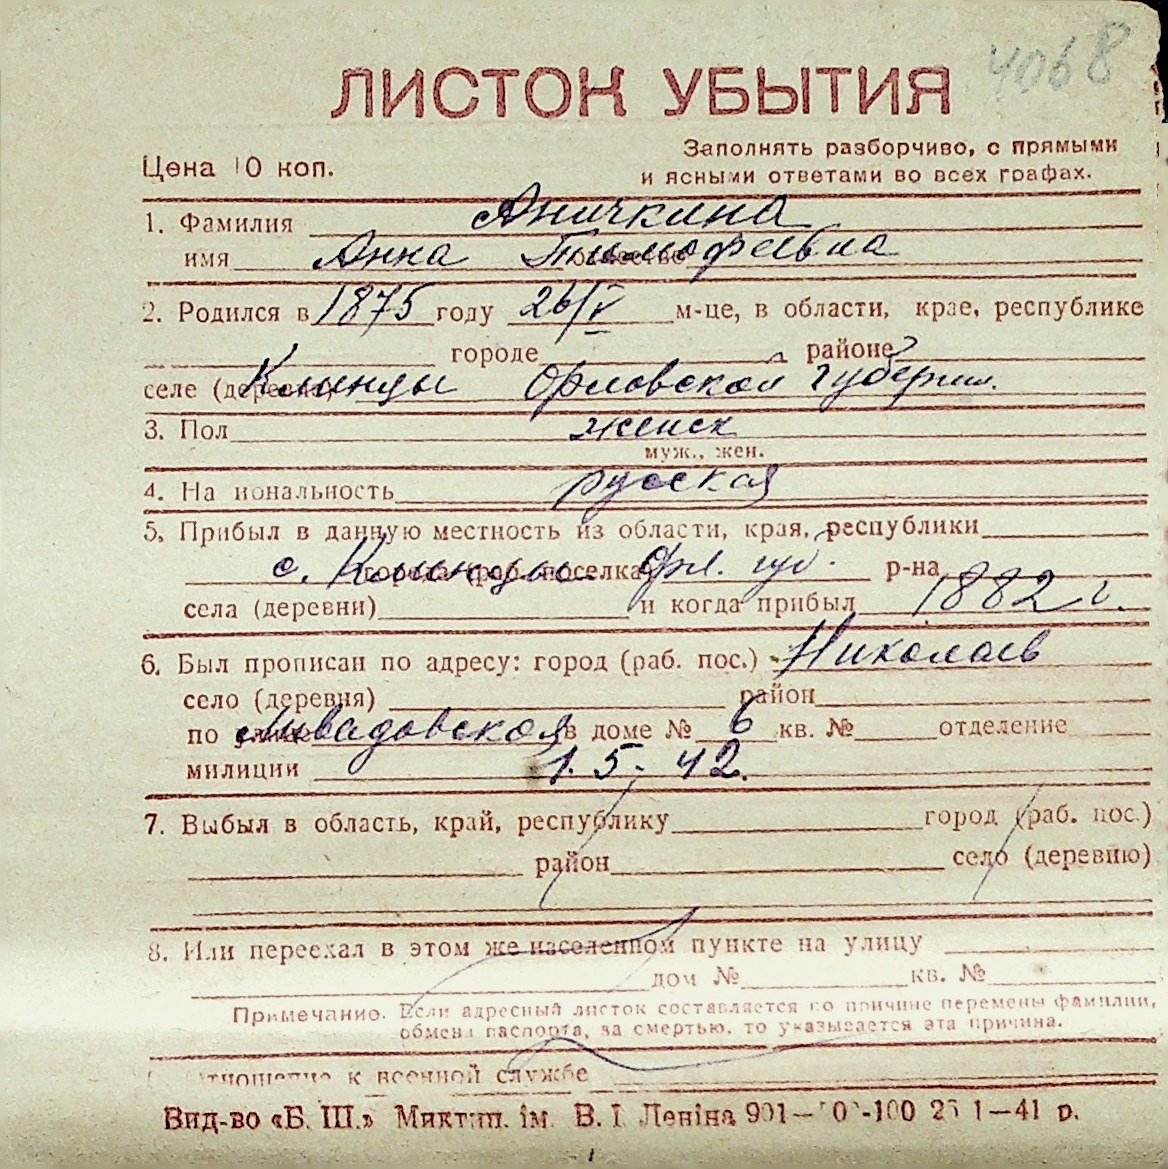 4068
ЛИСТОК УБЫТИЯ
Цена 10 коп.
Заполнять разборчиво, с прямыми
и ясными ответами во всех графах.
1. Фамилия Аничкина
имя Анна Тимофеевна
2. Родился в 1875 году 26/V м-це, в области, крае, республике
городе районе
селе (деревне) Клинцы Орловской губернии.
3. Пол женск
муж., жен.
4. Национальность русская
5. Прибыл в данную местность из области, края, республики
с. Клинцы Орл. губ. р-на
города (раб. поселка)
села (деревни) и когда прибыл 1882 г.
6. Был прописан по адресу: город (раб. пос.) Николаев
село (деревня) район
по улице Ливадовская в доме № 6 кв. № отделение
милиции 1.5-42.
7. Выбыл в область, край, республику город (раб. пос.)
район село (деревню)
8. Или переехал в этом же населенном пункте на улицу
дом № кв. №
Примечание. Если адресный листок составляется по причине перемены фамилии,
обмена паспорта, за смертью, то указывается эта причина.
Отношение к военной службе
Вид-во «Б. Ш.» Миктип. ім. В. І. Леніна 1—41 р.